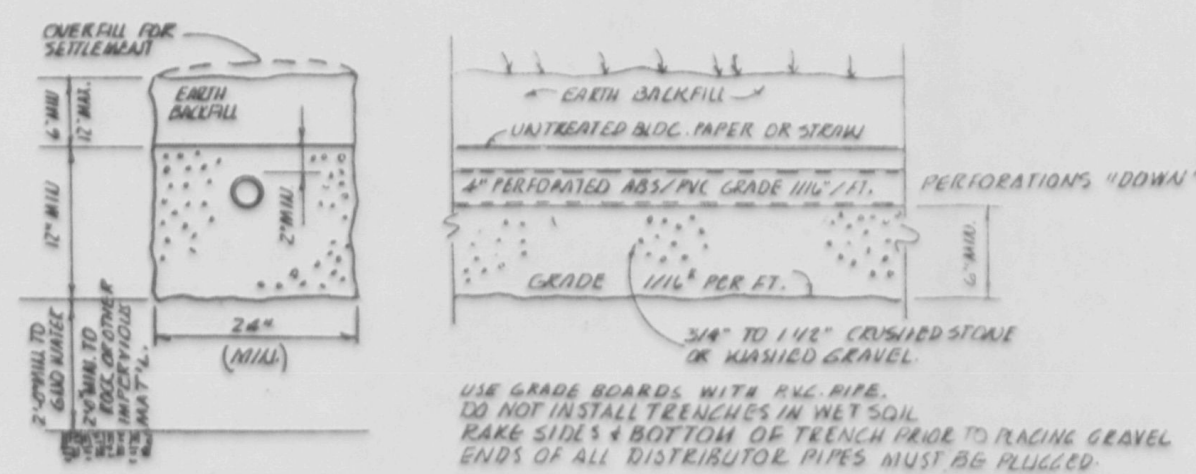 OVERFILL FOR
SETTLEMENT
EARTH
BACKFILL
12" MAX.
12" MIN
2" MIN.
24"
(MIN.)
2'-0" MIN. TO
GND WATER
2'-0" MIN. TO
ROCK OR OTHER
IMPERVIOUS
MAT'L.
EARTH BACKFILL
UNTREATED BLDG. PAPER OR STRAW
4" PERFORATED ABS/PVC GRADE 1/16"/FT.
PERFORATIONS "DOWN"
6" MIN.
GRADE 1/16" PER FT.
3/4" TO 1 1/2" CRUSHED STONE
OR WASHED GRAVEL.
USE GRADE BOARDS WITH P.V.C. PIPE.
DO NOT INSTALL TRENCHES IN WET SOIL
RAKE SIDES & BOTTOM OF TRENCH PRIOR TO PLACING GRAVEL
ENDS OF ALL DISTRIBUTOR PIPES MUST BE PLUGGED.